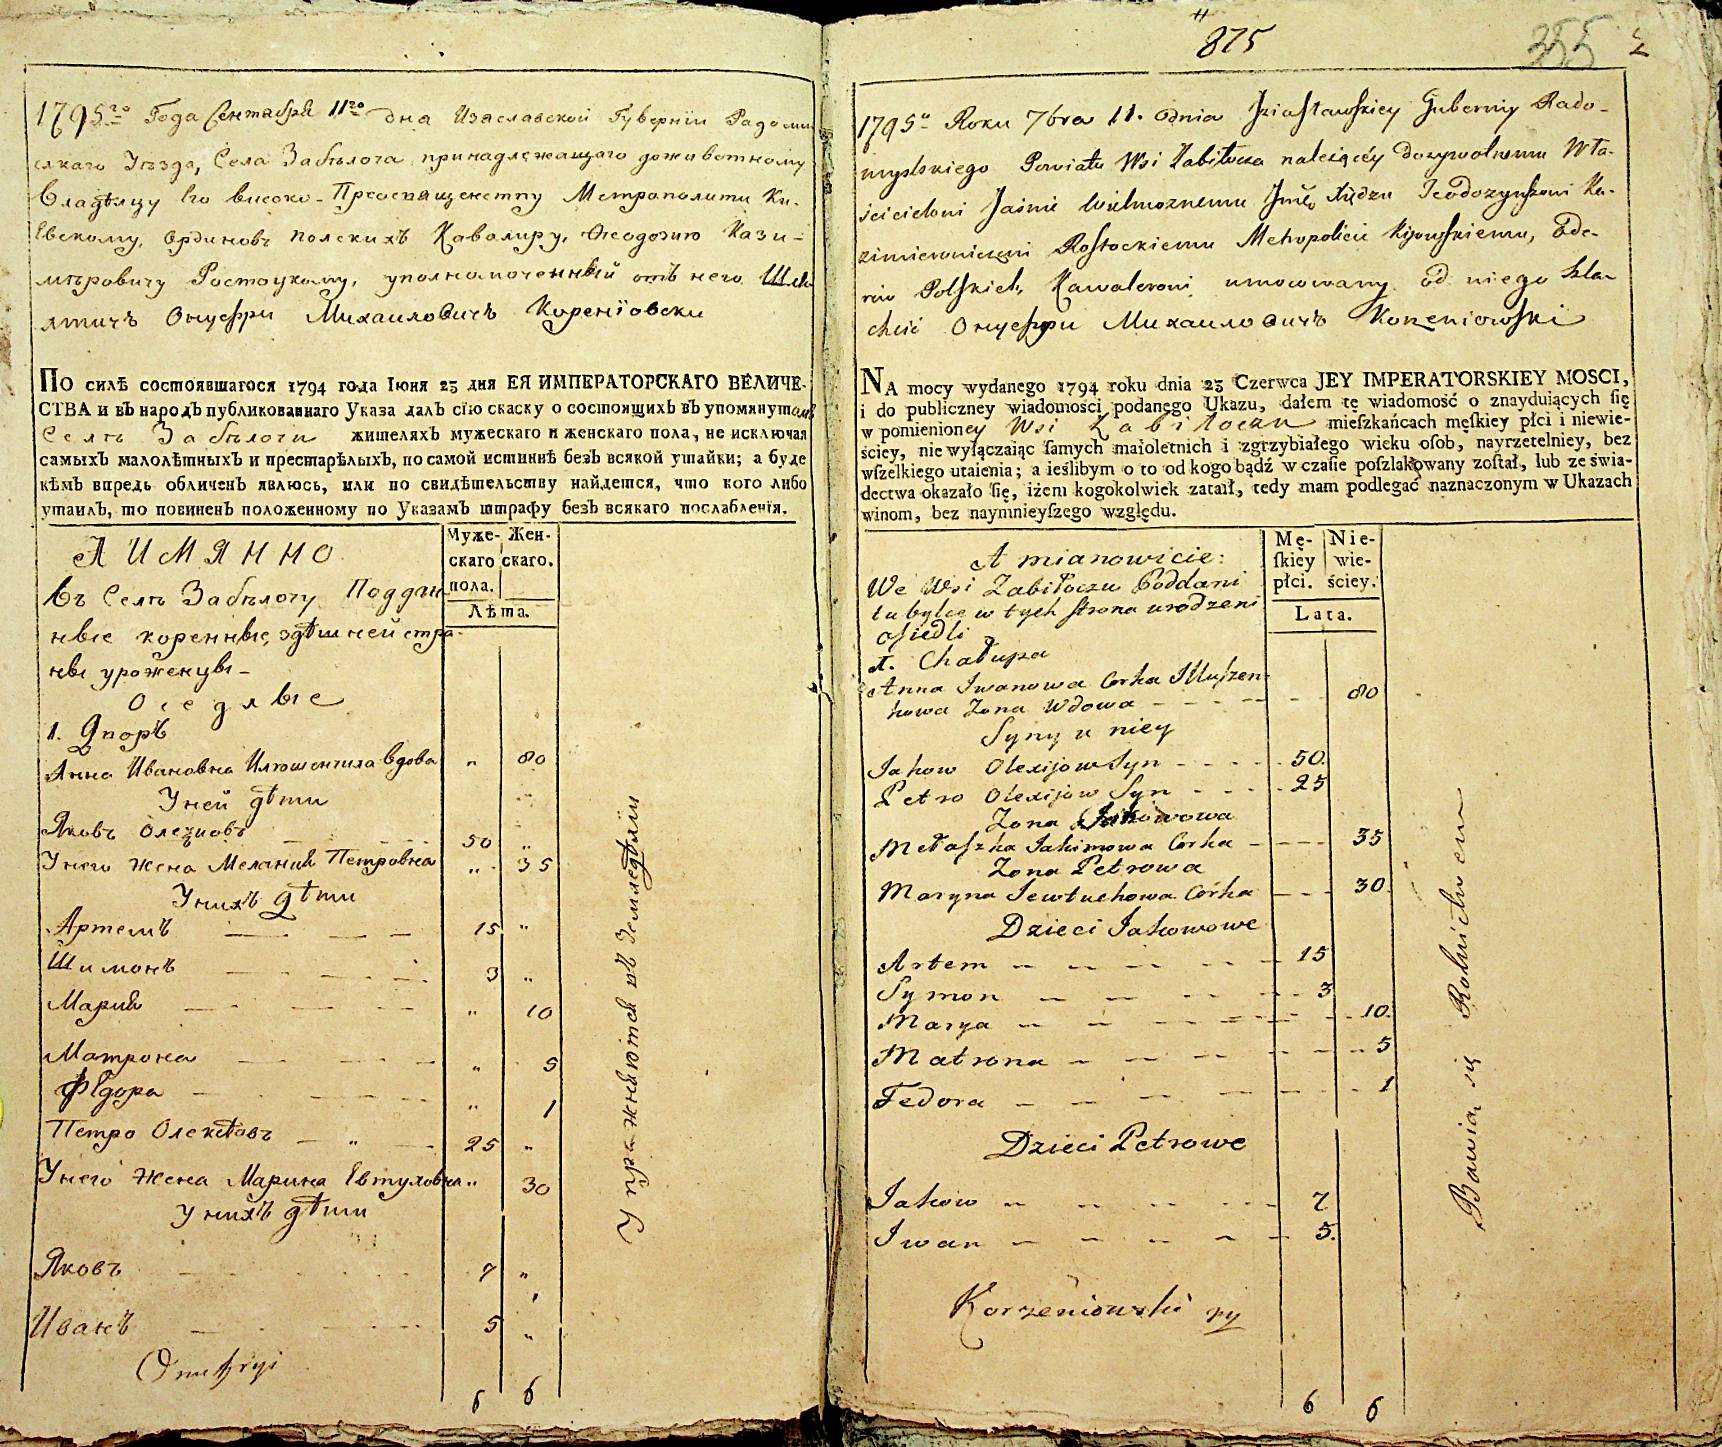 1795го Года Сентября 11го дня Изяславской Губернїи Радомы
слкаго Уѣзда, Села Забѣлоча принадлежащаго доживотному
Владѣлцу Его высоко-Преосвященству Митрополиту Ки-
Евскому, Ординовъ полскихъ Кавалиру, Феодозию Кази-
мѣровичу Ростоцкому, уполномоченный отъ него Шля
хтичъ Онуфри Михаиловичъ Коренїовски
По силѣ состоявшагося 1794 года Іюня 23 дня ЕЯ ИМПЕРАТОРСКАГО ВЕЛИЧЕ-
СТВА и въ народъ публикованнаго Указа далъ сїю скаску о состоящихъ въ упомянутомъ
Селѣ Забѣлочи жителяхъ мужескаго и женскаго пола, не исключая
самыхъ малолѣтныхъ и престарѣлыхъ, по самой истиннѣ безъ всякой утайки; а буде
кѣмъ впредь обличенъ явлюсь, или по свидѣтельству найдется, что кого либо
утаилъ, то повиненъ положенному по Указамъ штрафу безъ всякаго послабленїя.
А ИМЯННО
Муже-скаго пола. Жен-скаго.
Лѣта.
Въ Селѣ Забѣлочу Поддан
ные коренные, здѣшней стра-
ны уроженцы-
Оседлые
1. Дворъ
Анна Ивановна Илюшенкина вдова " 80
У ней дѣти
Яковъ Олеѯиовъ 50 "
У него Жена Мелания Петровна " 35
У нихъ дѣти
Артемъ 15 "
Шимонъ 3 "
Мария " 10
Матрона " 5
Фѣдора " 1
Петро Олексѣовъ 25 "
У него Жена Марина Евтуховна " 30
У нихъ дѣти
Яковъ 7 "
Иванъ 5 "
6 6
Упражняются въ Земледѣлїи
875
355
1795o Roku 7bra 11. dnia Iziasławskiey Guberniy Rado-
myslskiego Powiatu Wsi Zabiłocza należącey dożywotnemu Wła-
ścicielowi Jaśnie Wielmożnemu Jmć Xiędzu Teodozyuszowi Ka-
zimierowiczowi Rostockiemu Metropolicie Kijowskiemu, Orde-
row Polskich Kawalerowi, umocowany od niego Szla-
chcić Онуфри Михаиловичъ Korzeniowski
NA mocy wydanego 1794 roku dnia 23 Czerwca JEY IMPERATORSKIEY MOSCI,
i do publiczney wiadomości podanego Ukazu, dałem tę wiadomość o znayduiących ſię
w pomienioney Wsi Zabiłoczu mieſzkańcach męſkiey płci i niewie-
ściey, nie wyłączaiąc ſamych maioletnich i zgrzybiałego wieku oſob, nayrzetelniey, bez
wſzelkiego utaienia; a ieślibym o to od kogo bądź w czaſie poſzlakowany zoſtał, lub ze świa-
dectwa okazało ſię, iżem kogokolwiek zataił, tedy mam podlegać naznaczonym w Ukazach
winom, bez naymnieyſzego względu.
A mianowicie:
Mę-ſkiey płci. Nie-wie-ściey.
Lata.
We Wsi Zabiłoczu Poddani
tubylce w tych strona urodzeni
osiedli
1. Chałupa
Anna Iwanowa Corka Iluszen-
kowa Zona Wdowa 80
Syny u niey
Jakow Olexijow Syn 50.
Petro Olexijow Syn 25
Zona Jakowowa
Mełaszka Jakimowa Corka 35
Zona Petrowa
Maryna Jewtuchowa Corka 30.
Dzieci Jakowowe
Artem 15
Symon 3
Marya 10.
Matrona 5
Fedora 1
Dzieci Petrowe
Jakow 7
Iwan 5.
Korzeniowski
6 6
Bawia się Rolnictwem